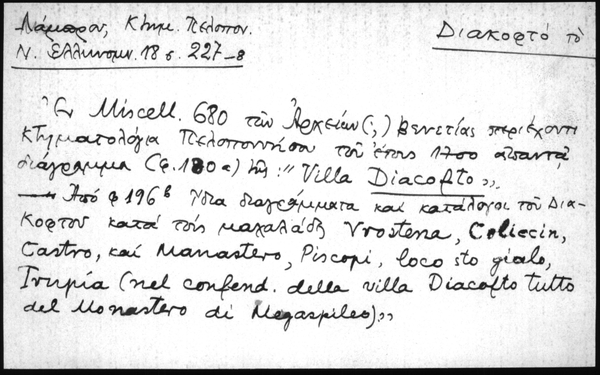 Λάμπρου, Κτημ. Πελοπον.
Ν. Ελληνομν. 18 σ. 227-8
Διακοφτό το
Ἐν Miscell. 680 τῶν Ἀρχείων (;) Βενετίας περιέχοντι
κτηματολόγια Πελοποννήσου τοῦ ἔτους 1700 ἀπαντᾷ
διάγραμμα (φ. 180α) τῆς: "Villa Diacofto"
— Ἀπό φ 196β ἴδια διαγράμματα καί κατάλογοι τοῦ Δια-
κοφτού κατά τούς μαχαλάδες Vrostena, Celiecin,
Castro, καί Manastero, Piscopi, loco sto gialo,
Trupia (nel confend. della villa Diacofto tutto
del Monastero di Megaspileo)"